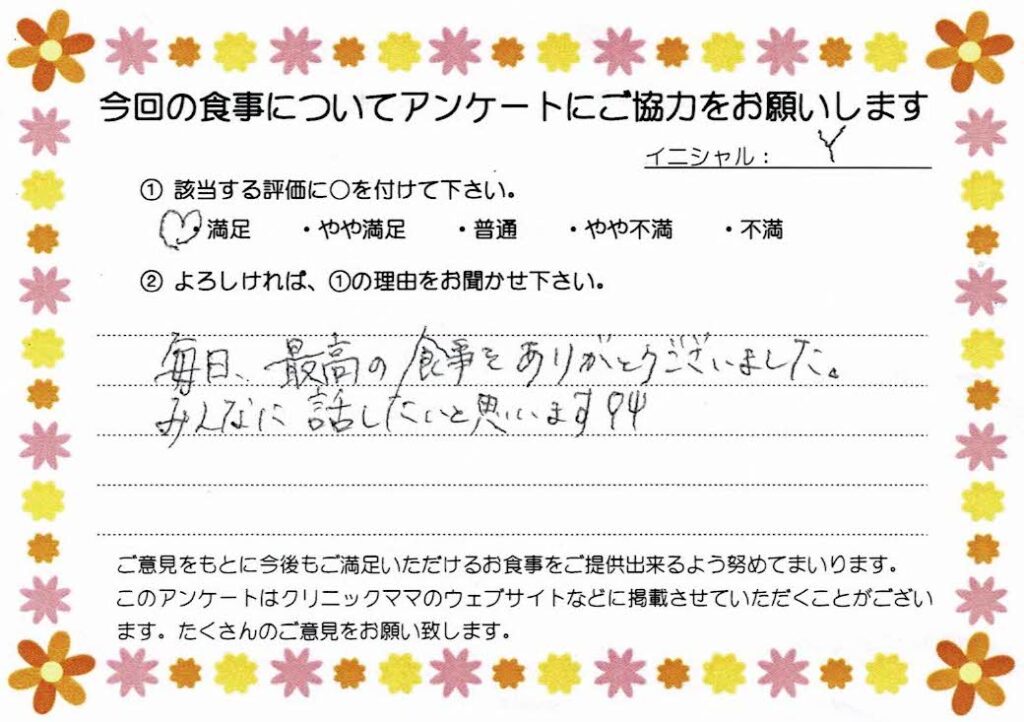 今回の食事についてアンケートにご協力をお願いします
イニシャル： Y
① 該当する評価に○を付けて下さい。
・満足 ・やや満足 ・普通 ・やや不満 ・不満
② よろしければ、①の理由をお聞かせ下さい。
毎日、最高の食事をありがとうございました。
みんなに話したいと思います
ご意見をもとに今後もご満足いただけるお食事をご提供出来るよう努めてまいります。
このアンケートはクリニックママのウェブサイトなどに掲載させていただくことがござい
ます。たくさんのご意見をお願い致します。